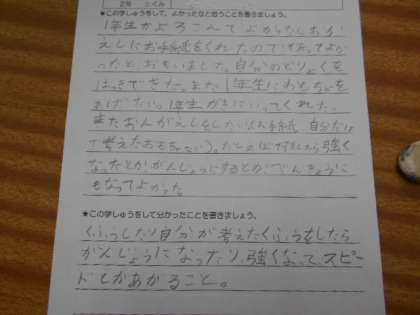 2年 2くみ
★この学しゅうをして、よかったなと思うことを書きましょう。
1年生がよろこんでよかった。しおが
えしにお手紙をくれたのであってよか
ったとおもいました。自分のどりょくを
はっきできた。また1年生におもちゃを
あげたい。1年生が上にいってくれた。
またおんがえしをしたい(お手紙、自分だけ
で考えたおもちゃ)。たとえば何をしたら強く
なったとかがんじょうにするとか、べんきょうに
もなってよかった
★この学しゅうをして分かったことを書きましょう。
くふうしたり自分が考えたくふうをしたら
がんじょうになったり、強くなって、スピー
ドとかあがること。